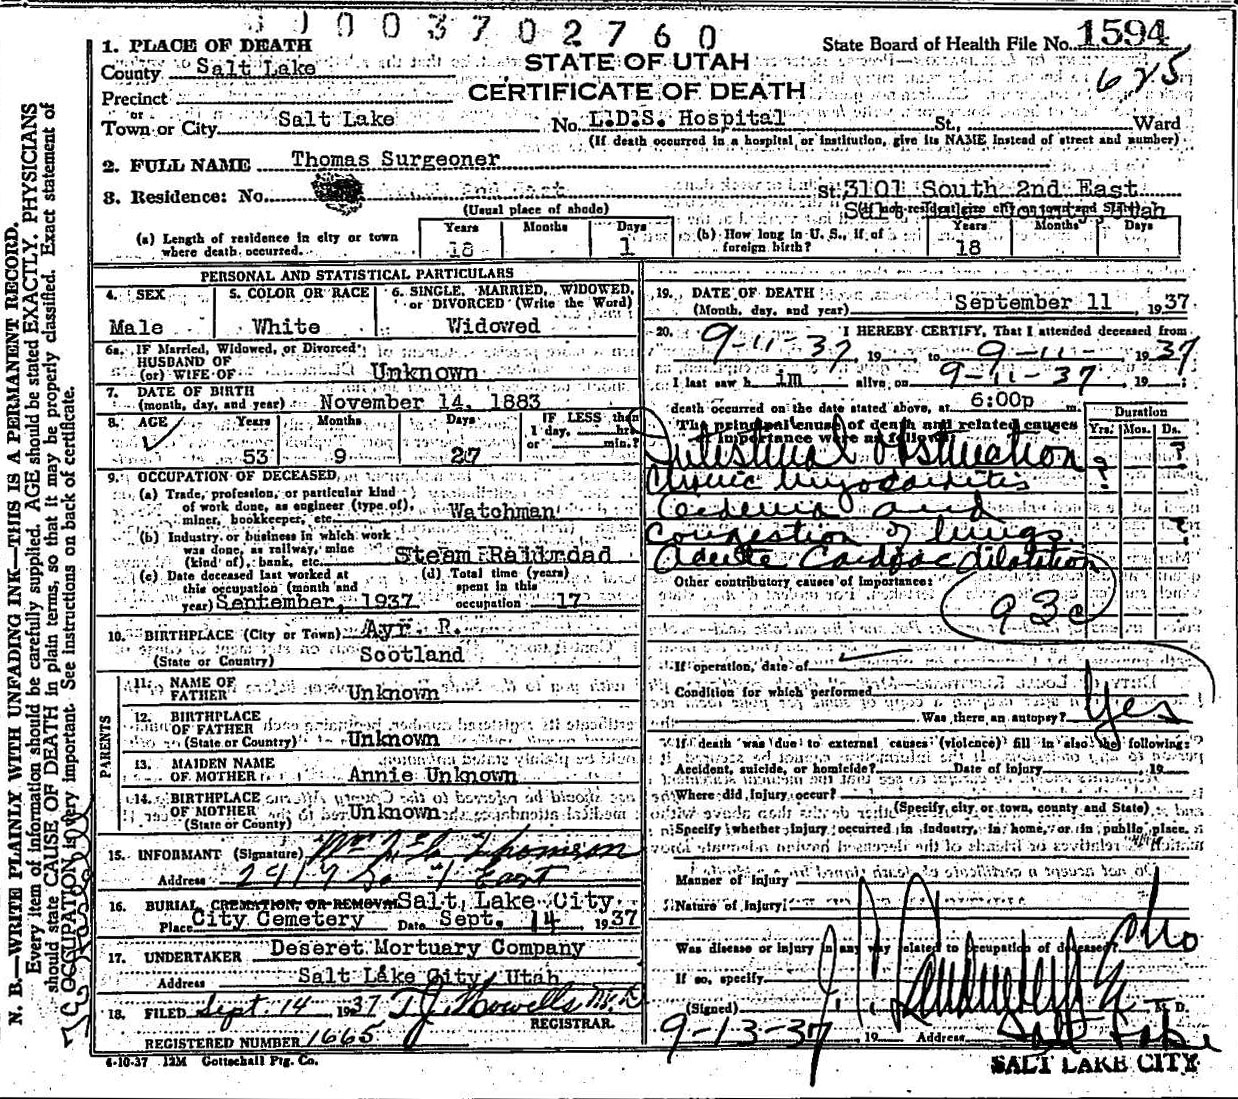 0003702760
1. PLACE OF DEATH
State Board of Health File No. 1594
County Salt Lake
STATE OF UTAH
625
Precinct
CERTIFICATE OF DEATH
or
Town or City Salt Lake No. L.D.S. Hospital St., Ward
(If death occurred in a hospital or institution, give its NAME instead of street and number)
2. FULL NAME Thomas Surgeoner
3. Residence: No. St. 3101 South 2nd East
(Usual place of abode)
Salt Lake County, Utah
(a) Length of residence in city or town where death occurred. Years 18 Months Days 1
(b) How long in U. S., if of foreign birth? Years 18 Months Days
PERSONAL AND STATISTICAL PARTICULARS
4. SEX
Male
5. COLOR OR RACE
White
6. SINGLE, MARRIED, WIDOWED, or DIVORCED (Write the Word)
Widowed
6a. IF Married, Widowed, or Divorced
HUSBAND OF
(or) WIFE OF Unknown
7. DATE OF BIRTH
(month, day, and year) November 14, 1883
8. AGE Years 53 Months 9 Days 27
IF LESS than 1 day, hrs. or min.?
9. OCCUPATION OF DECEASED
(a) Trade, profession, or particular kind
of work done, as engineer (type of),
miner, bookkeeper, etc. Watchman
(b) Industry or business in which work
was done, as railway, mine
(kind of), bank, etc. Steam Railroad
(c) Date deceased last worked at
this occupation (month and
year) September, 1937
(d) Total time (years)
spent in this
occupation 17
10. BIRTHPLACE (City or Town) Ayr. R.
(State or Country) Scotland
PARENTS
11. NAME OF
FATHER Unknown
12. BIRTHPLACE
OF FATHER
(State or Country) Unknown
13. MAIDEN NAME
OF MOTHER Annie Unknown
14. BIRTHPLACE
OF MOTHER Unknown
(State or Country)
15. INFORMANT (Signature) Thomson
Address 2917 So 4 East
16. BURIAL, CREMATION, OR REMOVAL Salt Lake City
Place City Cemetery Date Sept. 14 1937
17. UNDERTAKER Deseret Mortuary Company
Address Salt Lake City, Utah
18. FILED Sept. 14 1937 T.J. Howells M.D.
REGISTRAR.
REGISTERED NUMBER 1665
4-10-37 12M Gottschall Ptg. Co.
19. DATE OF DEATH
(Month, day, and year) September 11, 1937
20. I HEREBY CERTIFY, That I attended deceased from
9-11-37, 19 to 9-11-, 1937
I last saw him alive on 9-11-37, 19 ;
death occurred on the date stated above, at 6:00p m.
The principal cause of death and related causes
importance were as follows:
Duration
Yrs. Mos. Ds.
Intestinal Obstruction ?
Chronic Myocarditis ?
Oedema and
Congestion of lungs ?
Acute Cardiac dilatation
Other contributory causes of importance:
93c
If operation, date of
Condition for which performed
Was there an autopsy? Yes
If death was due to external causes (violence) fill in also the following:
Accident, suicide, or homicide? Date of injury , 19
Where did injury occur?
(Specify city or town, county and State)
Specify whether injury occurred in industry, in home, or in public place.
Manner of injury
Nature of injury
Was disease or injury in any way related to occupation of deceased? No
If so, specify
(Signed) M. D.
9-13-37, 19 Address Salt Lake
SALT LAKE CITY
N. B.—WRITE PLAINLY WITH UNFADING INK—THIS IS A PERMANENT RECORD.
Every item of information should be carefully supplied. AGE should be stated EXACTLY. PHYSICIANS
should state CAUSE OF DEATH in plain terms, so that it may be properly classified. Exact statement of
OCCUPATION is very important. See instructions on back of certificate.